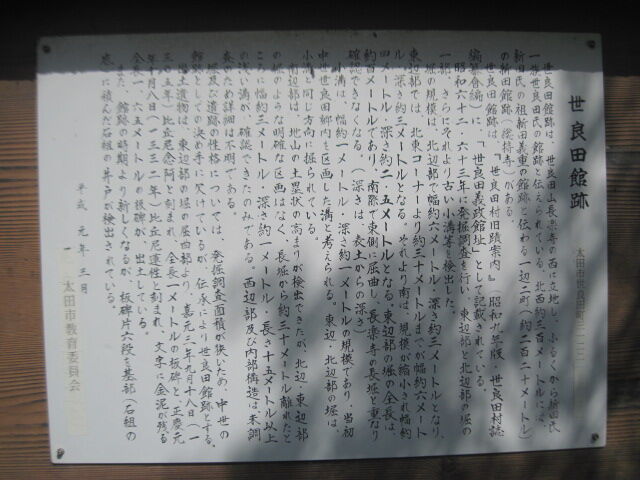 世良田館跡
太田市世良田町三一一二
世良田館跡は、世良田山長楽寺の西に立地し、ふるくから新田氏
一族世良田氏の館跡と伝えられている。北西約三百メートルには、
新田氏の祖新田義重の館跡と伝わる一辺二町(約二百二十メートル)
の新田館跡(総持寺)がある。
世良田館跡は、『世良田村旧蹟案内』(昭和九年版・世良田村誌
編纂会編)に「世良田義政館址」として記載されている。
昭和六十二・六十三年に発掘調査を行い、東辺部と北辺部の堀の
一部、さらにそれより古い小溝等を検出した。
堀の規模は、北辺部で幅約六メートル・深さ約三メートルとなり、
東辺部では、北東コーナーより約三十メートルまでが幅約六メート
ル・深さ約三メートルとなる。それより南は、規模が縮小され幅約
四メートル・深さ約二・五メートルとなる。東辺部の堀の全長は、
約四メートルであり、南際で東側に屈曲し、長楽寺の長堀と重なり
確認できなくなる。(深さは、表土からの深さ)
小溝は、幅約一メートル・深さ約一メートルの規模であり、当初
中世世良田郷内を区画した溝と考えられる。東辺・北辺部の堀は、
小溝と同じ方向に掘られている。
南辺部は、地山の土塁状の高まりが検出できたが、北辺・東辺部
の堀のような明確な区画はなく、長堀から約三十メートル離れたと
ころに幅約三メートル・深さ約一メートル・長さ十五メートル以上
の浅い溝が、確認できたのみである。西辺部及び内部構造は未調
査のため詳細は不明である。
堀及び遺跡の性格については、発掘調査面積が狭いため、中世の
館跡としての決め手に欠けているが、伝承により世良田館跡とする。
出土遺物は、東辺部の堀の屈曲部より、嘉元三年九月十八日(一
三〇五年)比丘尼念阿と刻まれ、全長一メートルの板碑と、正慶元
年十月八日(一三三二年)比丘尼連性と刻まれ、文字に金泥が残る
全長一・六五メートルの板碑が、出土している。
また、館跡の時期より新しくなるが、板碑片六段を基部(石組の
底)に積んだ石組の井戸が検出されている。
平成元年三月
太田市教育委員会